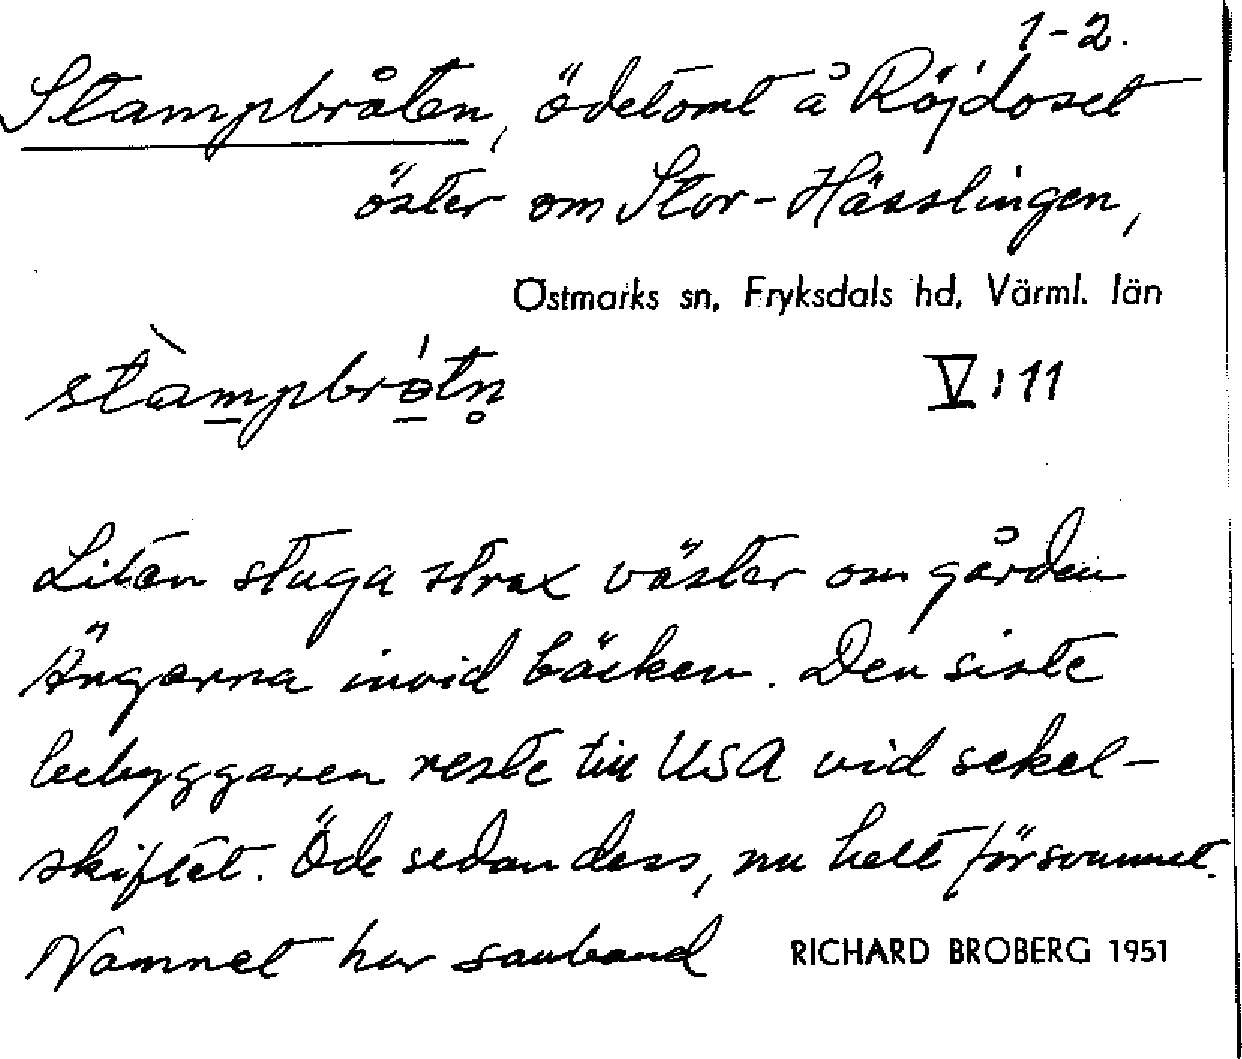 1-2.
Stampbråten, ödetomt å Röjdoset
öster om Stor-Hässlingen,
Östmarks sn, Fryksdals hd, Värml. län
stàmpbrótn̥ V:11
Liten stuga strax väster om gården
Ängarna invid bäcken. Den siste
bebyggaren reste till USA vid sekel-
skiftet. Öde sedan dess, nu helt försvunnet.
Namnet har samband RICHARD BROBERG 1951